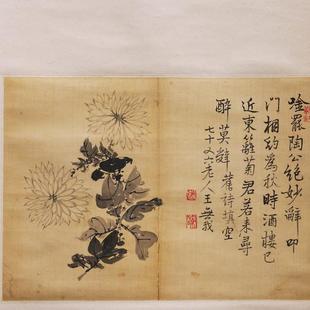 唫罷陶公絕妙辭即
門相約為秋時酒樓已
近東籬菊君若来尋
醉莫辤舊詩填空
七十又六老人王無我